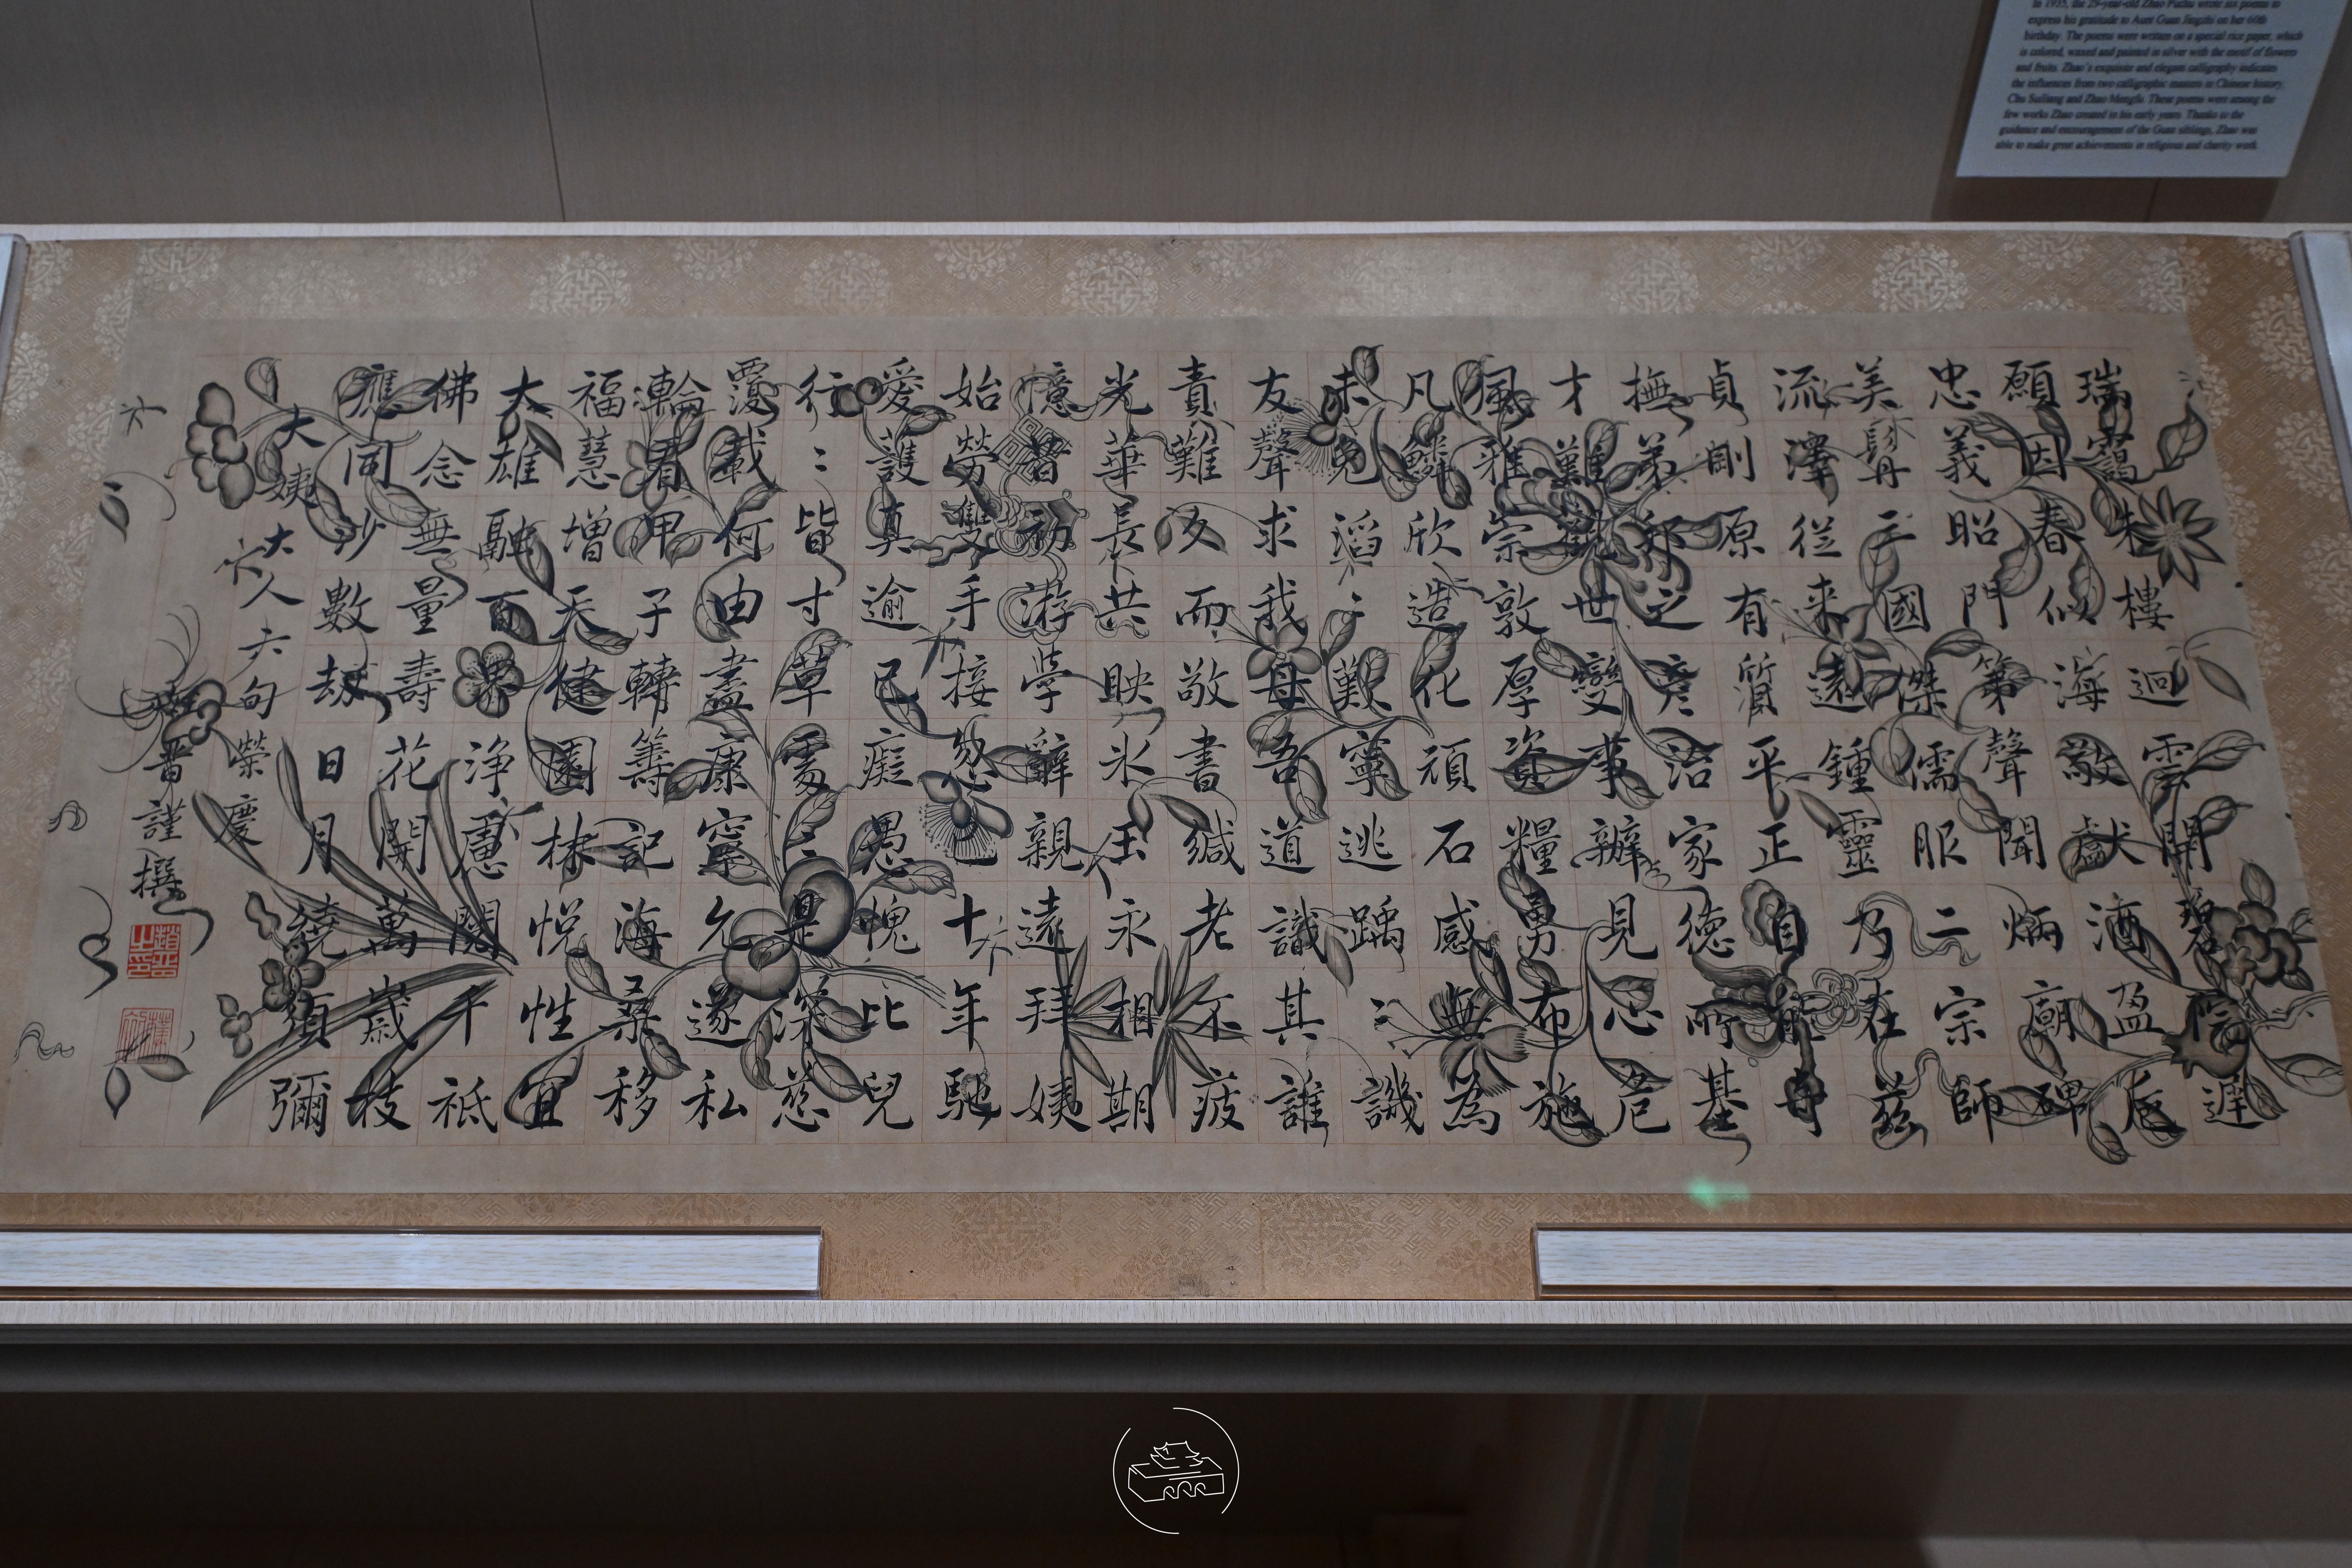 In 1935, the 29-year-old Zhao Puchu wrote six poems to
express his gratitude to Aunt Guan Jingzhi on her 60th
birthday. The poems were written on a special rice paper, which
is colored, waxed and painted in silver with the motif of flowers
and fruits. Zhao's exquisite and elegant calligraphy indicates
the influences from two calligraphic masters in Chinese history,
Chu Suiliang and Zhao Mengfu. These poems were among the
few works Zhao created in his early years. Thanks to the
guidance and encouragement of the Guan siblings, Zhao was
able to make great achievements in religious and charity work.
瑞靄朱樓迴雲開碧檻遲
願因春似海敬獻酒盈卮
忠義昭門第聲聞炳廟碑
美髯三國傑儒服二宗師
流澤從来遠鍾靈乃在茲
貞剛原有質平正自能奇
撫弟邦之彥治家德所基
才難觀世變事辦見心危
風雅崇敦厚資糧勇布施
凡鱗欣造化頑石感無為
未免滔〻歎寧逃踽〻譏
友聲求我母吾道識其誰
責難久而敬書緘老不疲
光華長共映冰玉永相期
憶昔初游學辭親遠拜姨
始勞雙手接忽已十年馳
愛護真逾己癡愚愧比兒
行〻皆寸草處〻是深慈
覆載何由盡康寧允遂私
輪看甲子轉籌記海桑移
福慧增天健園林悅性宜
大雄融百界淨慮閱千祇
佛念無量壽花開萬歲枝
應同沙數劫日月繞須彌
大姨大人六旬榮慶
甥普謹撰